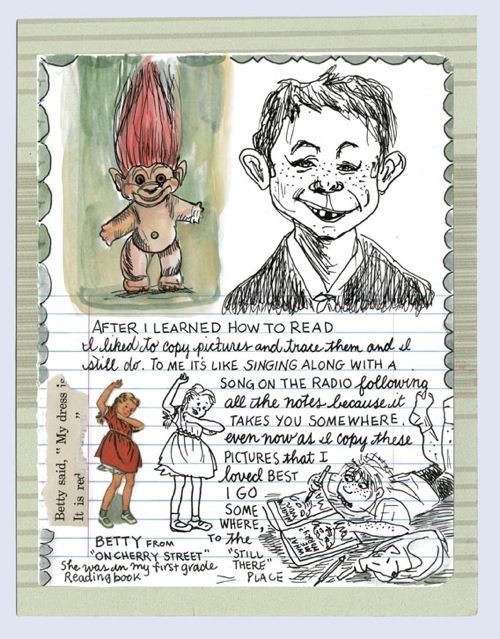 AFTER I LEARNED HOW TO READ
I liked to copy pictures and trace them and I
still do. TO ME IT'S LIKE SINGING ALONG WITH A
SONG ON THE RADIO following
all the notes because it
TAKES YOU SOMEWHERE.
even now as I copy these
PICTURES that I
loved BEST
I GO
SOME
WHERE,
to the
"STILL
THERE"
PLACE
Betty said, "My dress is
It is red "
BETTY FROM
"ON CHERRY STREET"
She was in my first grade
Reading book